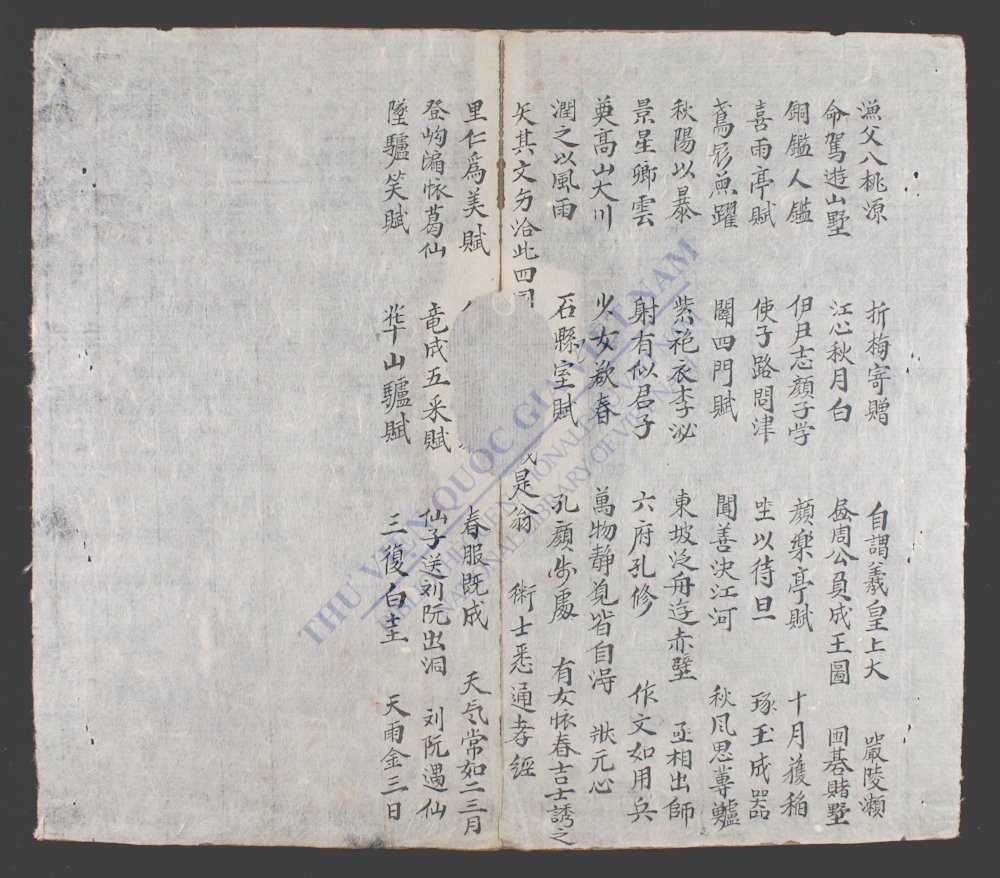 漁父入桃源 折梅寄贈 自謂羲皇上人 嚴陵瀨
命駕遊山墅 江心秋月白 畫周公負成王圖 囬碁賭墅
銅鑑人鑑 伊尹志顏子学 顏樂亭賦 十月獲稲
喜雨亭賦 使子路問津 坐以待旦 琢玉成器
鳶飛魚躍 闢四門賦 聞善决江河 秋风思蓴鱸
秋陽以暴 紫袍衣李泌 東坡泛舟逰赤壁 丞相出師
景星卿雲 射有似君子 六府孔修 作文如用兵
奠高山大川 少女歌春 萬物静觀皆自淂 狀元心
潤之以風雨 石縣室賦 孔顏 有女怀春吉士誘之
矢其文 洽此四囯 是翁 術士悉通孝經
里仁為美賦 春服既成 天气常如二三月
登岣漏怀葛仙 竜成五采賦 仙子送刘阮出洞 刘阮遇仙
墜驢笑賦 華山驢賦 三復白圭 天雨金三日
THƯ VIỆN QUỐC GIA VIỆT NAM
NATIONAL LIBRARY OF VIETNAM